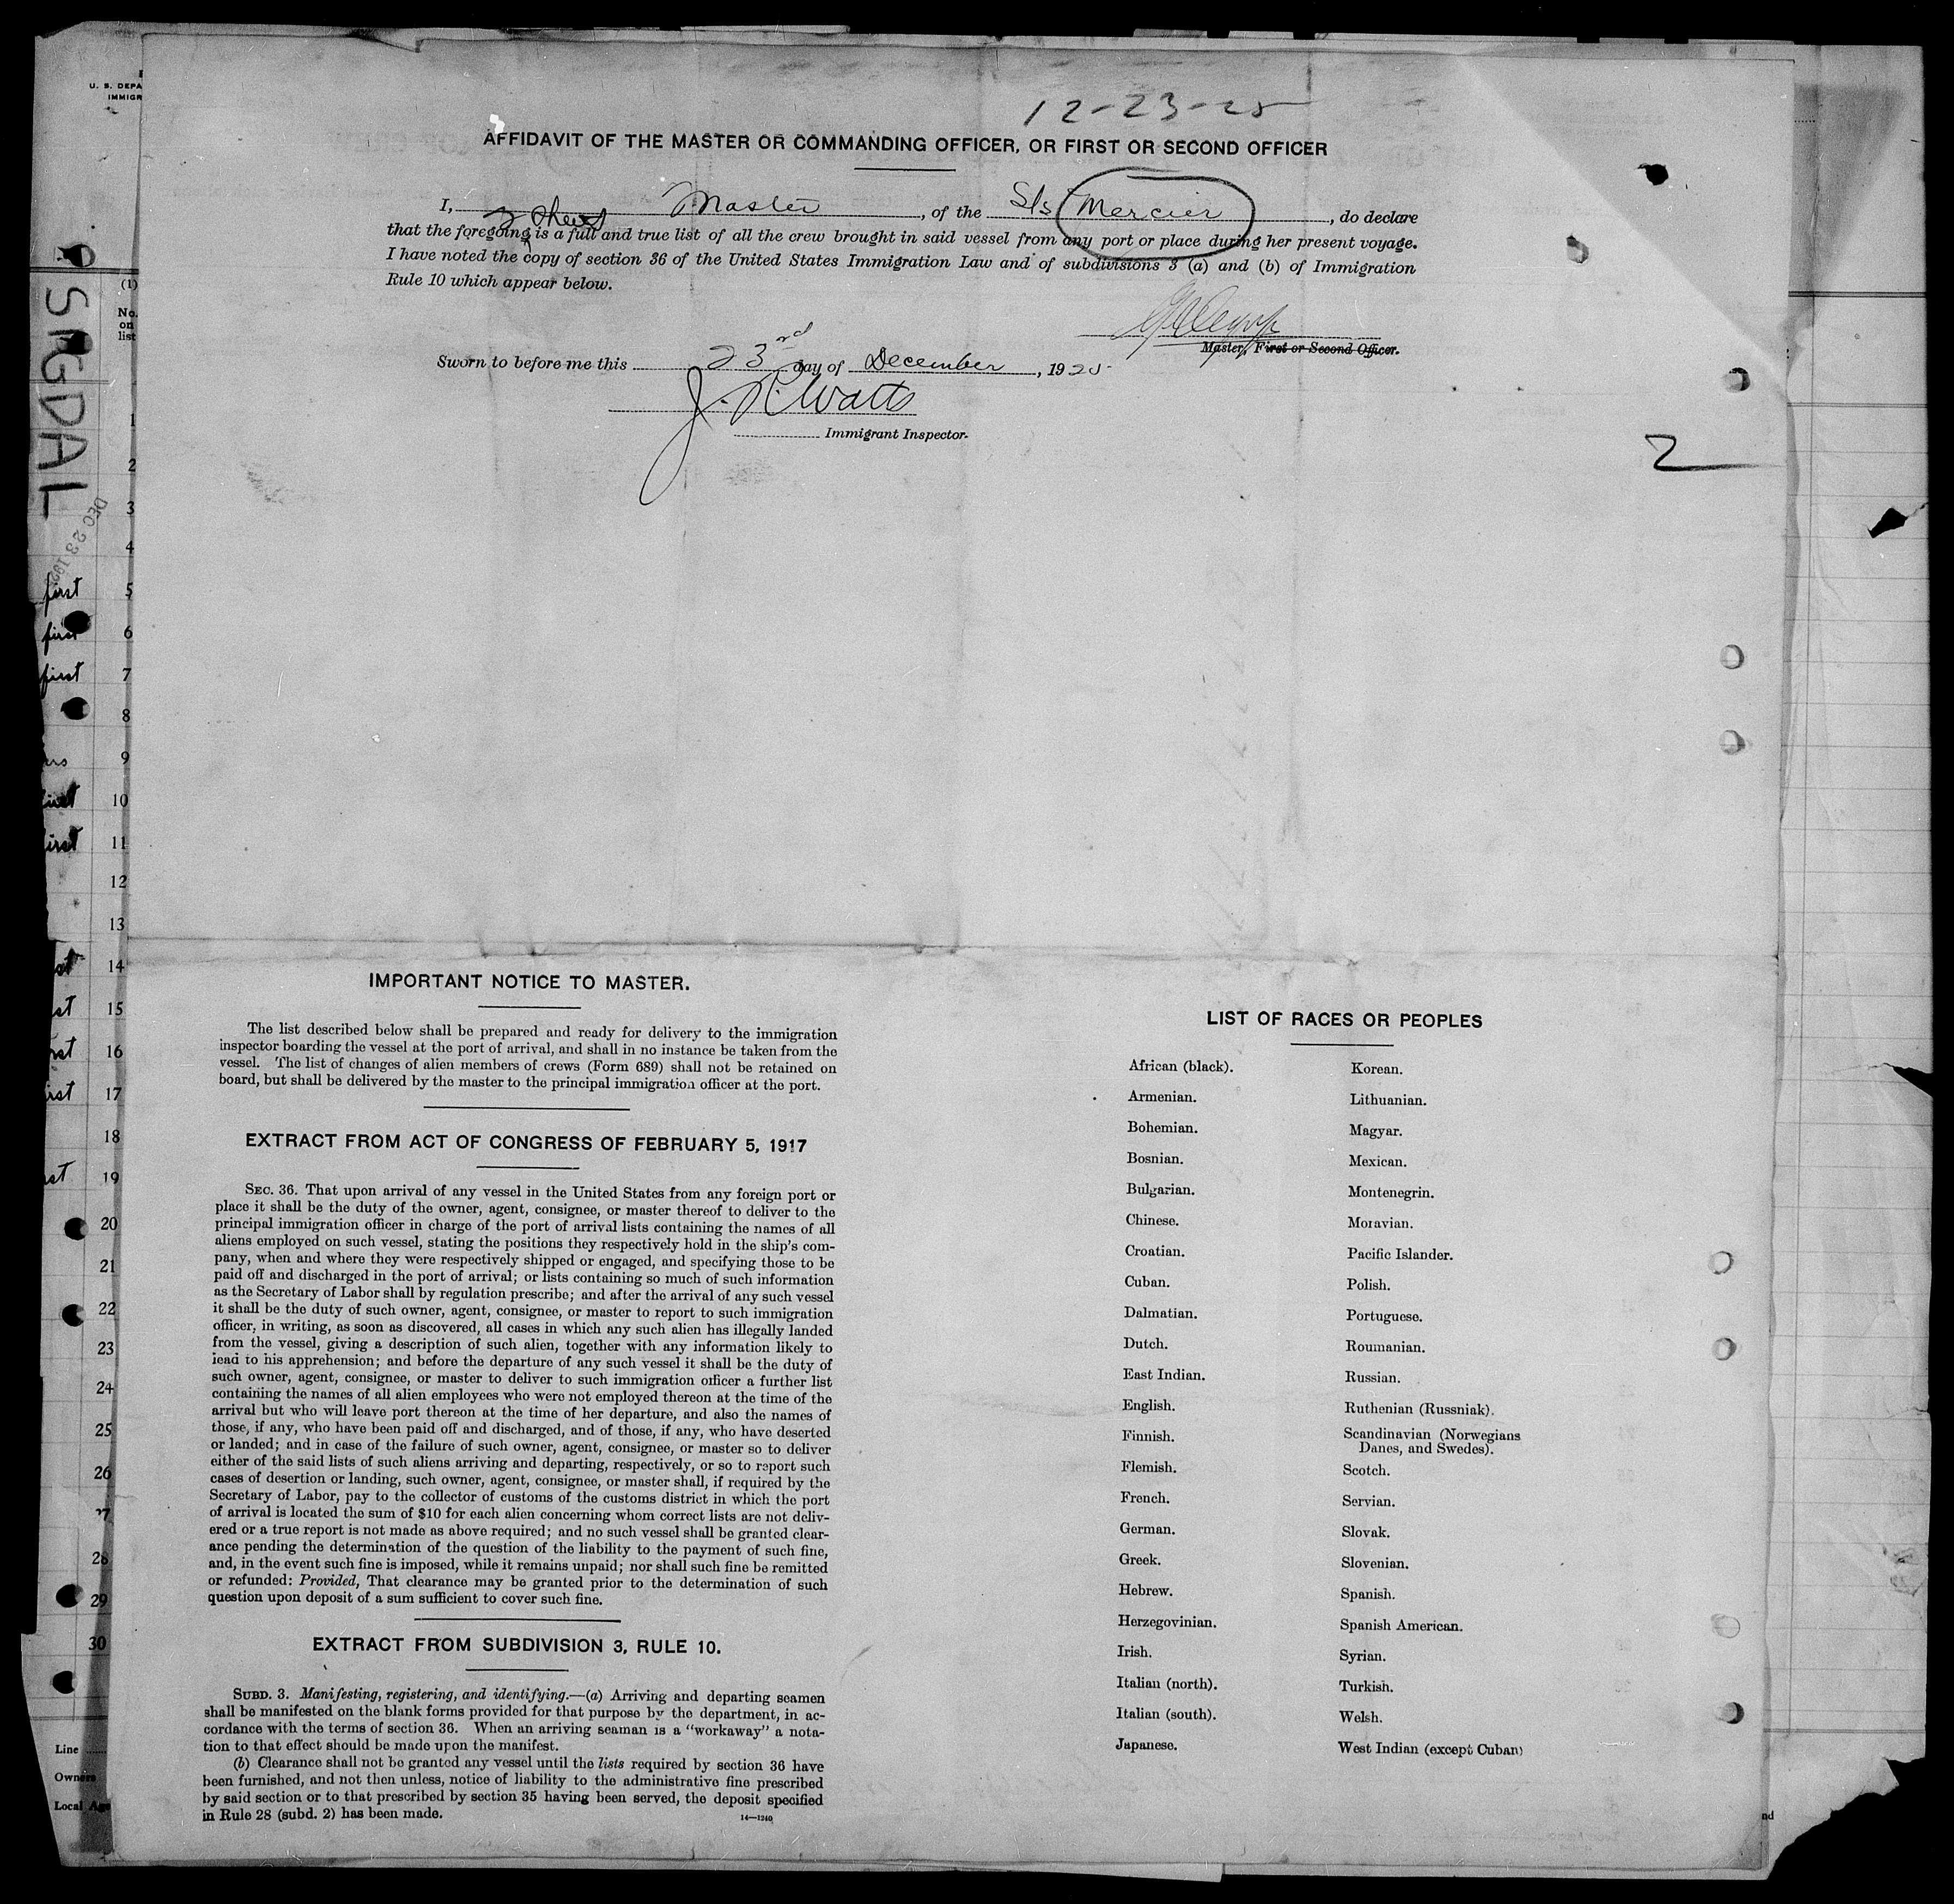 12-23-25
AFFIDAVIT OF THE MASTER OR COMMANDING OFFICER, OR FIRST OR SECOND OFFICER
I, Master, of the S/s Mercier, do declare
3 sheets
that the foregoing is a full and true list of all the crew brought in said vessel from any port or place during her present voyage.
I have noted the copy of section 36 of the United States Immigration Law and of subdivisions 3 (a) and (b) of Immigration
Rule 10 which appear below.
Master, First or Second Officer.
Sworn to before me this 23rd day of December, 1925
J. R. Watts
Immigrant Inspector.
2
IMPORTANT NOTICE TO MASTER.
The list described below shall be prepared and ready for delivery to the immigration
inspector boarding the vessel at the port of arrival, and shall in no instance be taken from the
vessel. The list of changes of alien members of crews (Form 689) shall not be retained on
board, but shall be delivered by the master to the principal immigration officer at the port.
EXTRACT FROM ACT OF CONGRESS OF FEBRUARY 5, 1917
SEC. 36. That upon arrival of any vessel in the United States from any foreign port or
place it shall be the duty of the owner, agent, consignee, or master thereof to deliver to the
principal immigration officer in charge of the port of arrival lists containing the names of all
aliens employed on such vessel, stating the positions they respectively hold in the ship's com-
pany, when and where they were respectively shipped or engaged, and specifying those to be
paid off and discharged in the port of arrival; or lists containing so much of such information
as the Secretary of Labor shall by regulation prescribe; and after the arrival of any such vessel
it shall be the duty of such owner, agent, consignee, or master to report to such immigration
officer, in writing, as soon as discovered, all cases in which any such alien has illegally landed
from the vessel, giving a description of such alien, together with any information likely to
lead to his apprehension; and before the departure of any such vessel it shall be the duty of
such owner, agent, consignee, or master to deliver to such immigration officer a further list
containing the names of all alien employees who were not employed thereon at the time of the
arrival but who will leave port thereon at the time of her departure, and also the names of
those, if any, who have been paid off and discharged, and of those, if any, who have deserted
or landed; and in case of the failure of such owner, agent, consignee, or master so to deliver
either of the said lists of such aliens arriving and departing, respectively, or so to report such
cases of desertion or landing, such owner, agent, consignee, or master shall, if required by the
Secretary of Labor, pay to the collector of customs of the customs district in which the port
of arrival is located the sum of $10 for each alien concerning whom correct lists are not deliv-
ered or a true report is not made as above required; and no such vessel shall be granted clear-
ance pending the determination of the question of the liability to the payment of such fine,
and, in the event such fine is imposed, while it remains unpaid; nor shall such fine be remitted
or refunded: Provided, That clearance may be granted prior to the determination of such
question upon deposit of a sum sufficient to cover such fine.
EXTRACT FROM SUBDIVISION 3, RULE 10.
SUBD. 3. Manifesting, registering, and identifying.—(a) Arriving and departing seamen
shall be manifested on the blank forms provided for that purpose by the department, in ac-
cordance with the terms of section 36. When an arriving seaman is a "workaway" a nota-
tion to that effect should be made upon the manifest.
(b) Clearance shall not be granted any vessel until the lists required by section 36 have
been furnished, and not then unless, notice of liability to the administrative fine prescribed
by said section or to that prescribed by section 35 having been served, the deposit specified
in Rule 28 (subd. 2) has been made.
14—1240
LIST OF RACES OR PEOPLES
African (black).
Armenian.
Bohemian.
Bosnian.
Bulgarian.
Chinese.
Croatian.
Cuban.
Dalmatian.
Dutch.
East Indian.
English.
Finnish.
Flemish.
French.
German.
Greek.
Hebrew.
Herzegovinian.
Irish.
Italian (north).
Italian (south).
Japanese.
Korean.
Lithuanian.
Magyar.
Mexican.
Montenegrin.
Moravian.
Pacific Islander.
Polish.
Portuguese.
Roumanian.
Russian.
Ruthenian (Russniak).
Scandinavian (Norwegians
Danes, and Swedes).
Scotch.
Servian.
Slovak.
Slovenian.
Spanish.
Spanish American.
Syrian.
Turkish.
Welsh.
West Indian (except Cuban)
U. S. DEPA
IMMIGR
(1)
No.
on
list
SIRGDAL
DEC 23 192
1
2
3
4
first 5
first 6
first 7
8
9
10
11
12
13
14
15
16
17
18
19
20
21
22
23
24
25
26
27
28
29
30
Line
Owners
Local Age
nd